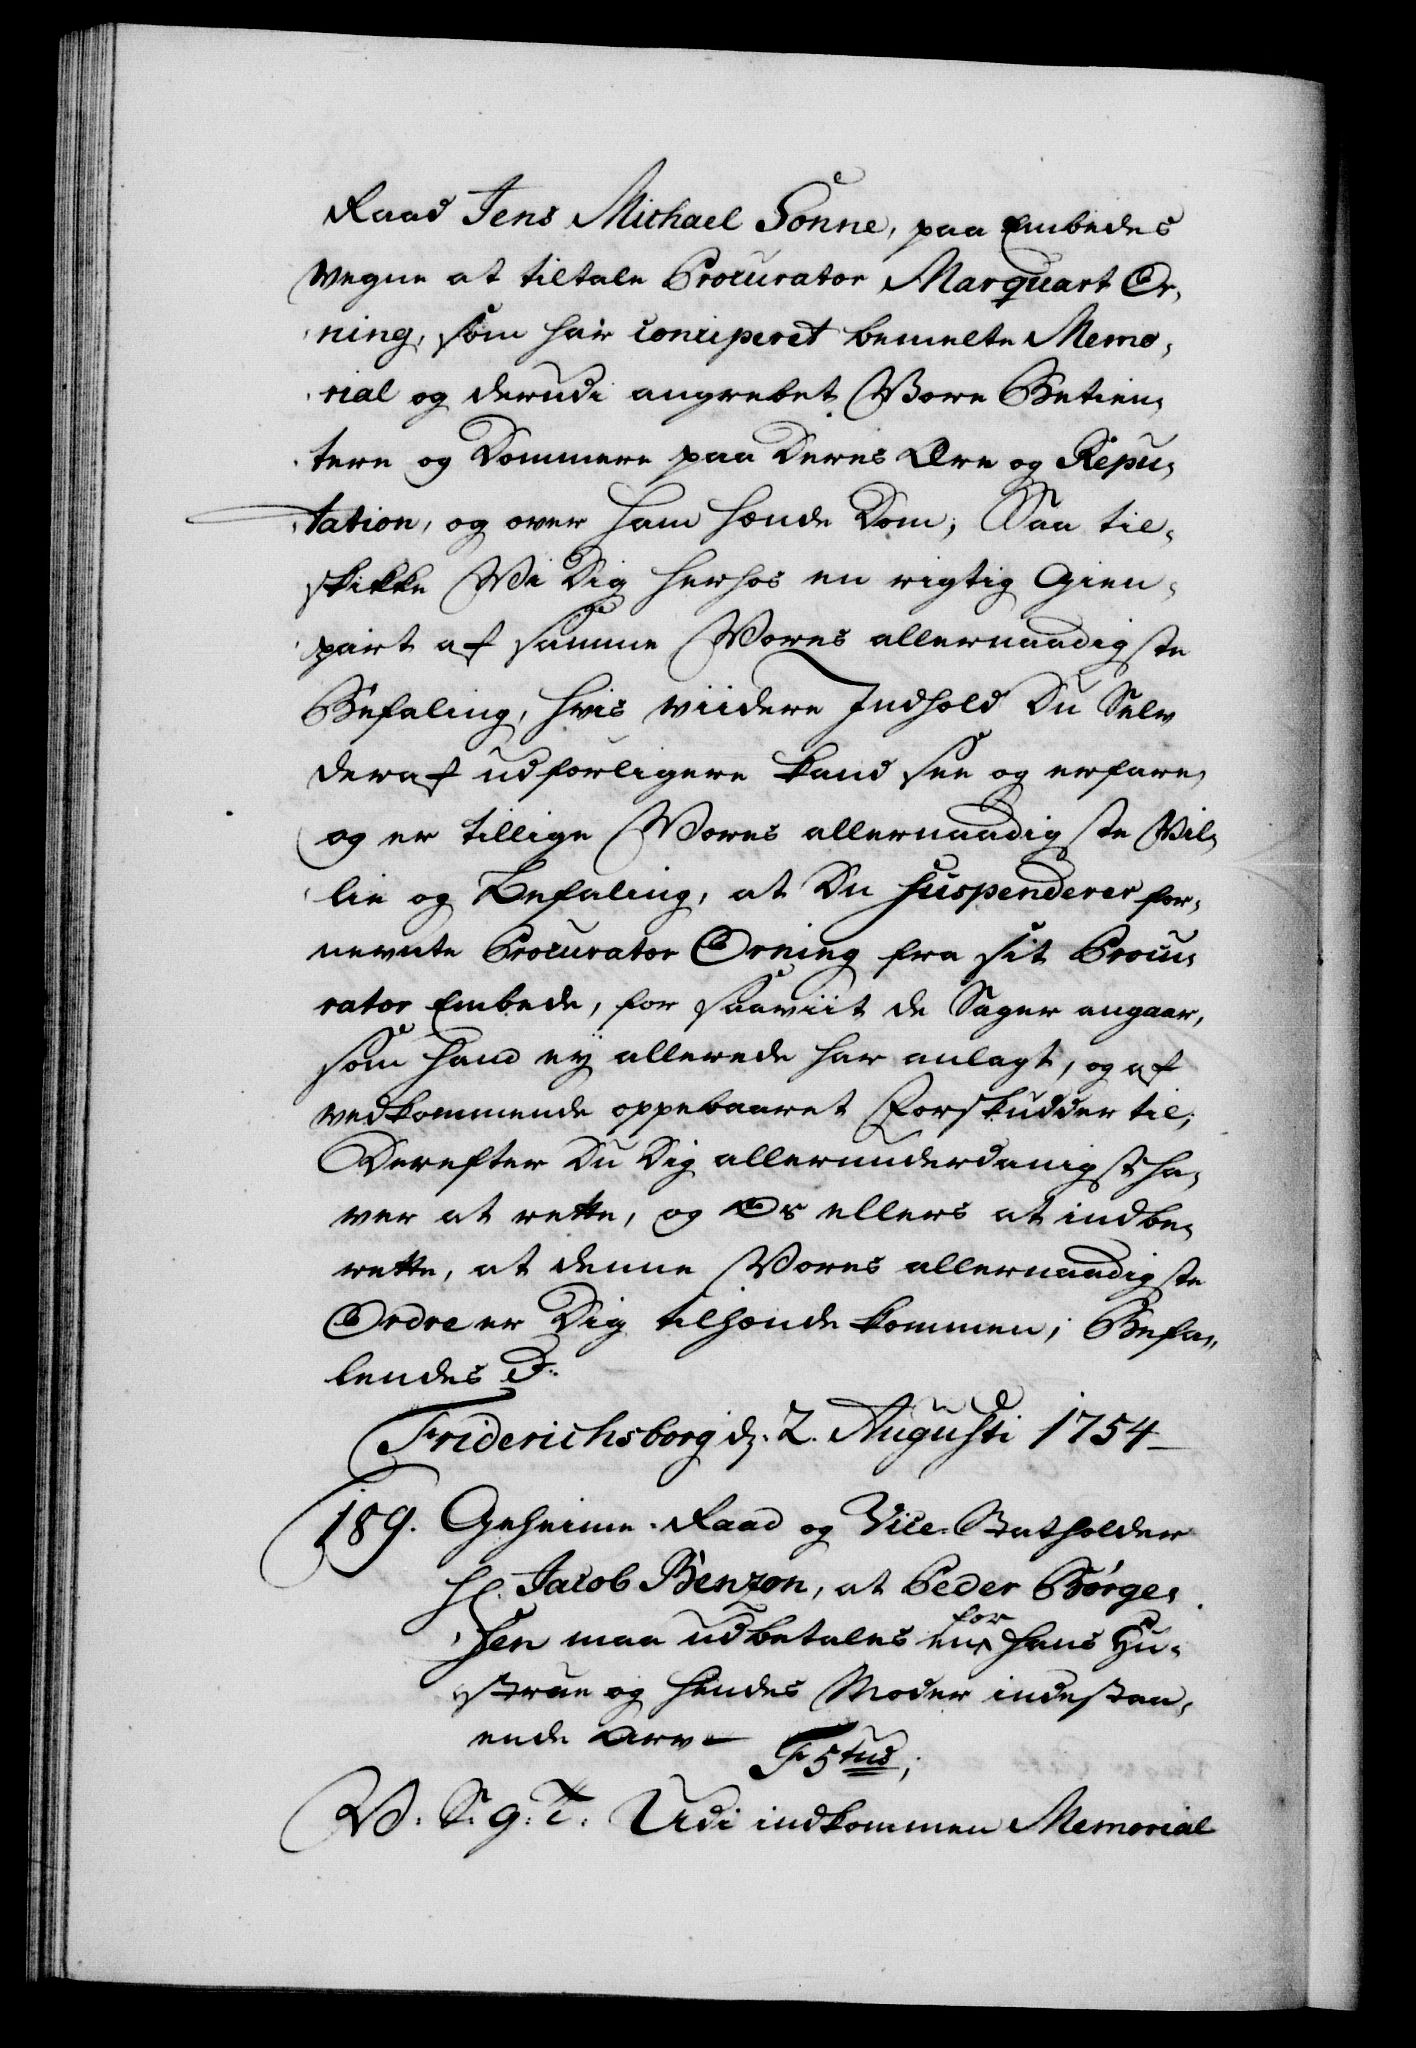 Raad Jens Michael Sonne, paa Embedes
Vegne at tiltale Procurator Marquart Or,
ning, som har conciperet bemelte Memo,
rial og derudi angrebet Vore Betien,
tere og Dommere paa deres Ære og Repu,
tation, og over ham hænde Dom; Saa til,
skikke Vi Dig herhos en rigtig Gien,
part af samme Vores allernaadigste
Befaling, hvis viidere Indhold Du Selv
deraf udførligere kand see og erfare,
og er tillige Vores allernaadigste Vil,
lie og Befaling, at Du suspenderer for,
nevnte Procurator Orning fra sit Procu,
rator Embede, for saaviit de Sager angaar,
som hand ey allerede har anlagt, og af
vedkommende oppebaaret Forskudder til;
Derefter Du Dig allerunderdanigst ha,
ver at rette, og Os ellers at indbe,
rette, at denne Vores allernaadigste
Ordre er Dig tilhænde kommen; Befa,,
lendes
Friderichsborg d. 2. Augusti 1754
189. Geheime-Raad og Vice-Statholder
Hr. Jacob Benzon, at Peder Børge,
sen maa udbetales for hans Hu,
strue og hendes Moder indestaa,
ende Arv
V. S. g. T. Udi indkommen Memorial